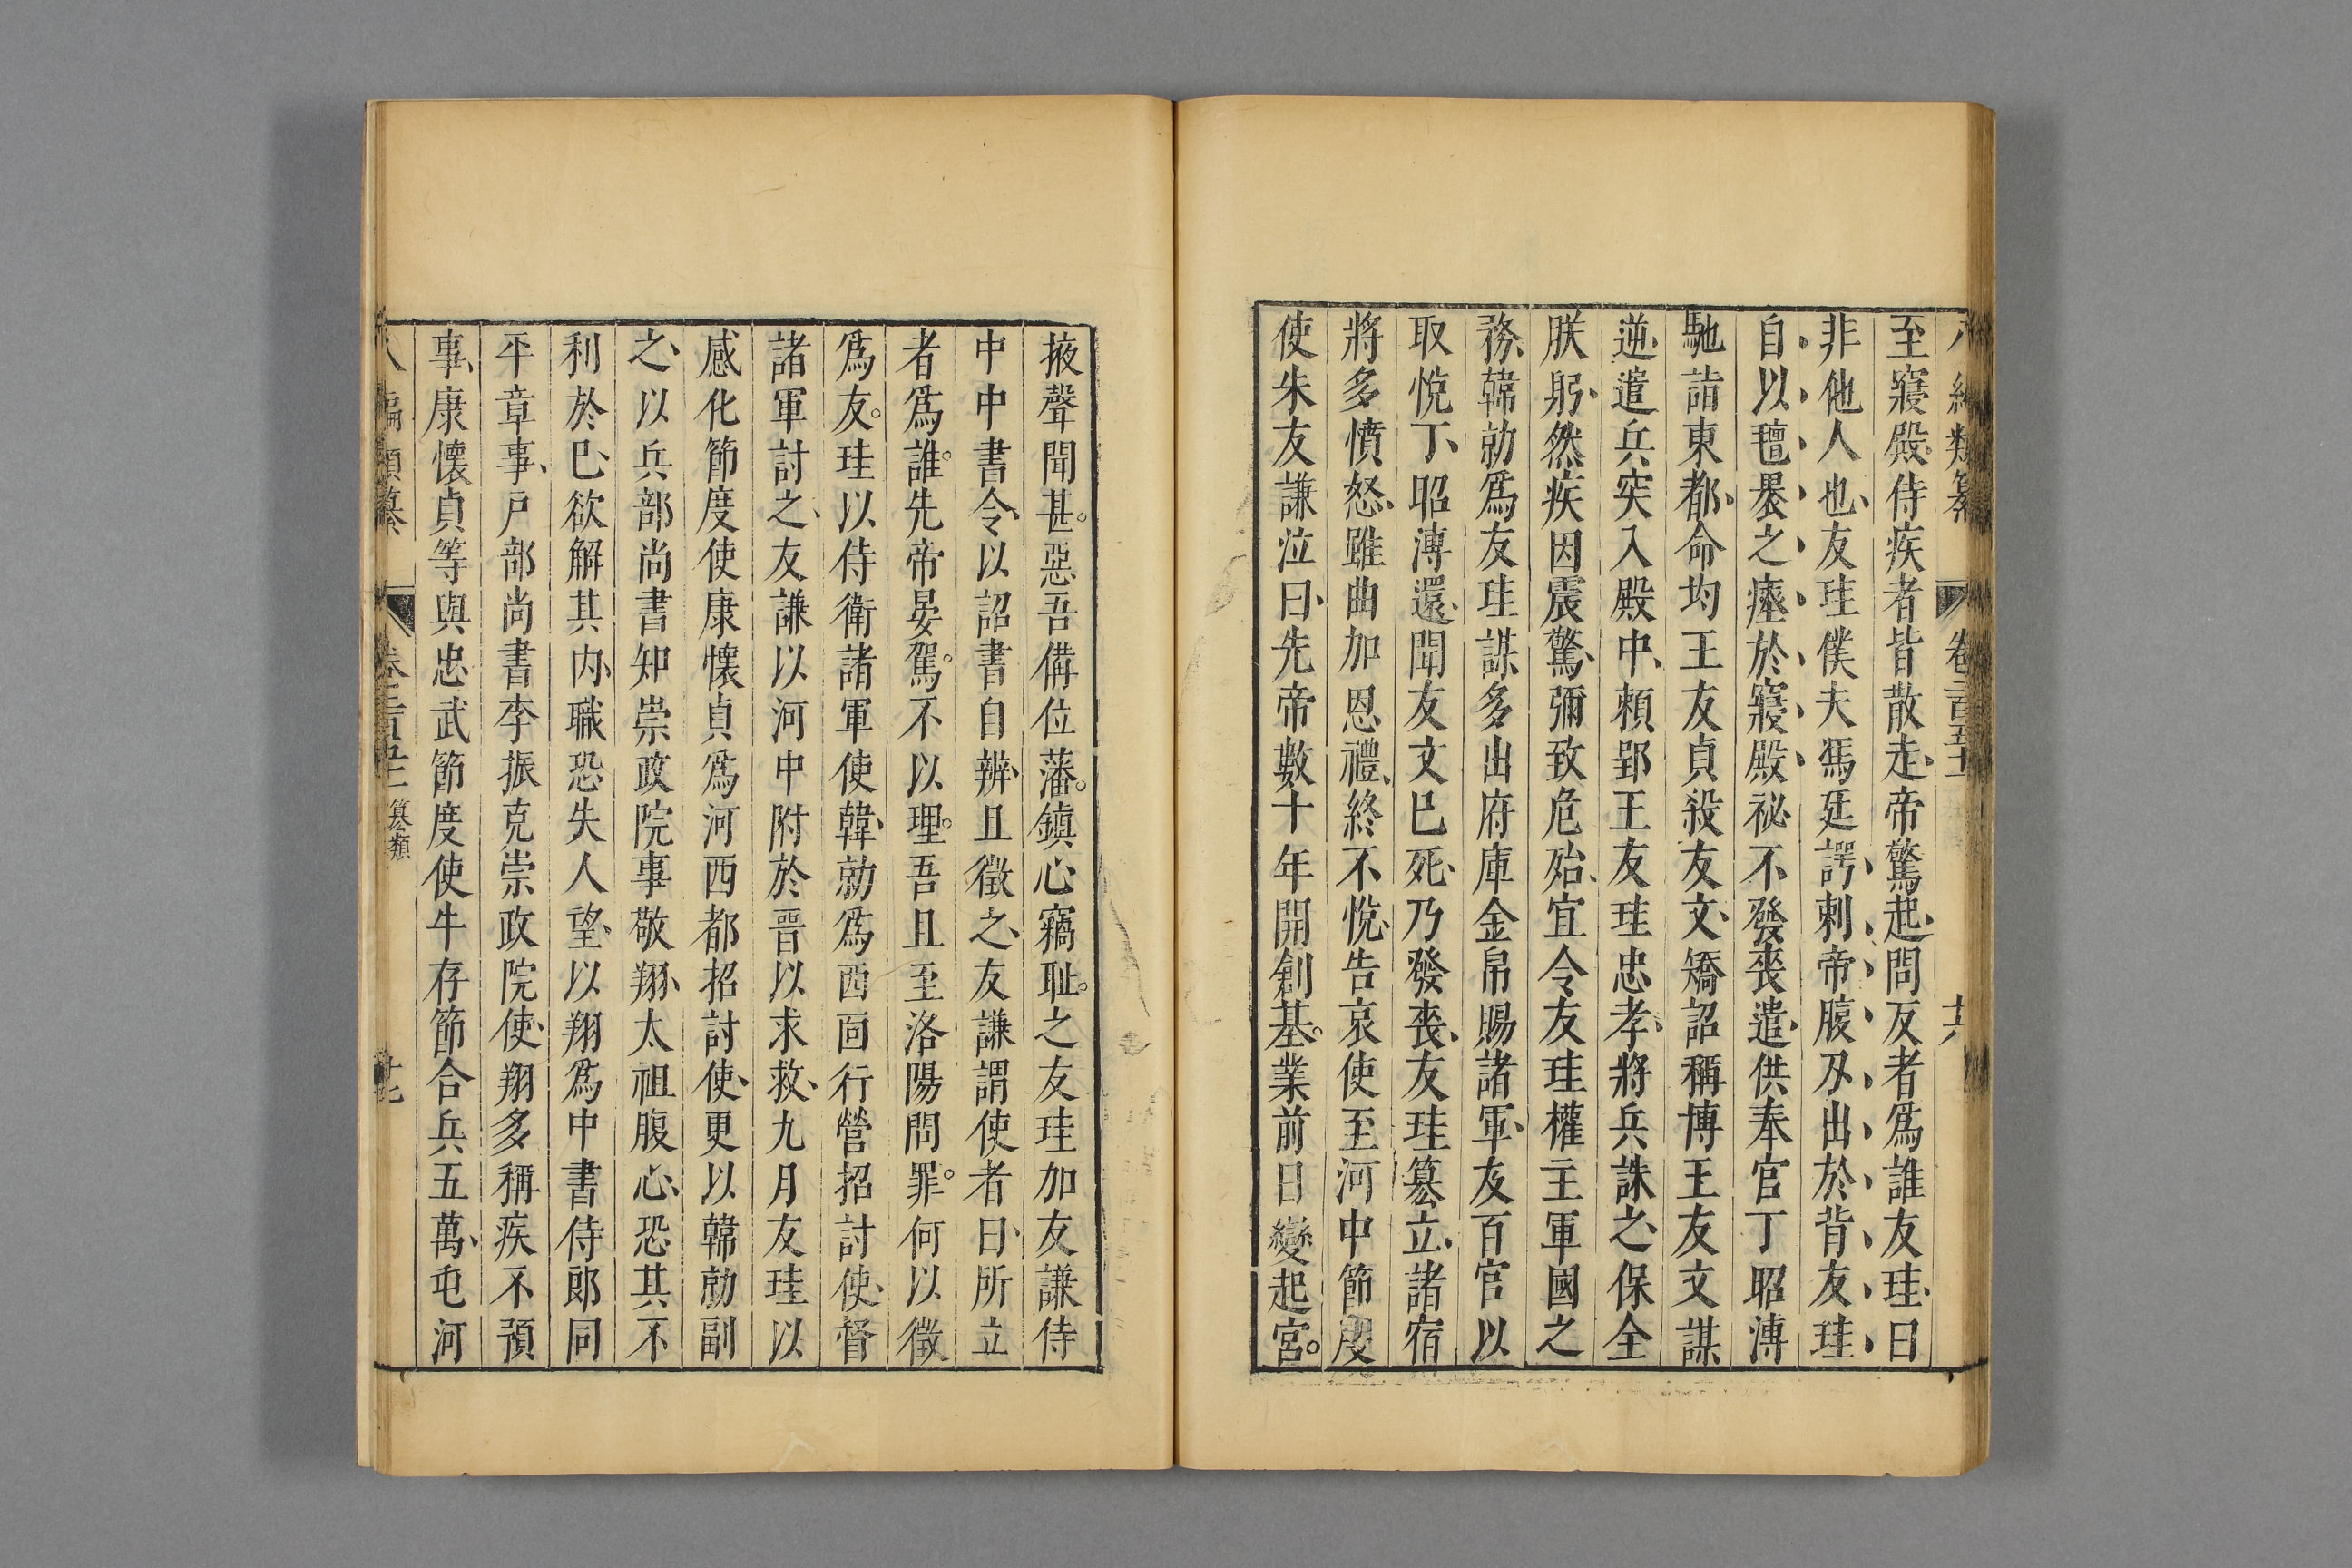 八編類纂 卷二百五十 十六
至寢殿侍疾者皆散走帝驚起問反者爲誰友珪曰
非他人也友珪僕夫馮廷諤刺帝腹刃出於背友珪
自以氊褁之瘞於寢殿祕不發喪遣供奉官丁昭溥
馳詣東都命均王友貞殺友文矯詔稱博王友文謀
逆遣兵突入殿中賴郢王友珪忠孝將兵誅之保全
朕躬然疾因震驚彌致危殆宜令友珪權主軍國之
務韓勍爲友珪謀多出府庫金帛賜諸軍友百官以
取悅丁昭溥還聞友文已死乃發喪友珪簒立諸宿
將多憤怒雖曲加恩禮終不悅告哀使至河中節度
使朱友謙泣曰先帝數十年開創基業前日變起宮
掖聲聞甚惡吾備位藩鎮心竊耻之友珪加友謙侍
中中書令以詔書自辨且徵之友謙謂使者曰所立
者爲誰先帝晏駕不以理吾且至洛陽問罪何以徵
爲友珪以侍衛諸軍使韓勍爲西面行營招討使督
諸軍討之友謙以河中附於晉以求救九月友珪以
感化節度使康懷貞爲河西都招討使更以韓勍副
之以兵部尚書知崇政院事敬翔太祖腹心恐其不
利於已欲解其内職恐失人望以翔爲中書侍郎同
平章事戶部尚書李振克崇政院使翔多稱疾不預
事康懷貞等與忠武節度使牛存節合兵五萬屯河
八編類纂 卷二百五十 簒類 十七